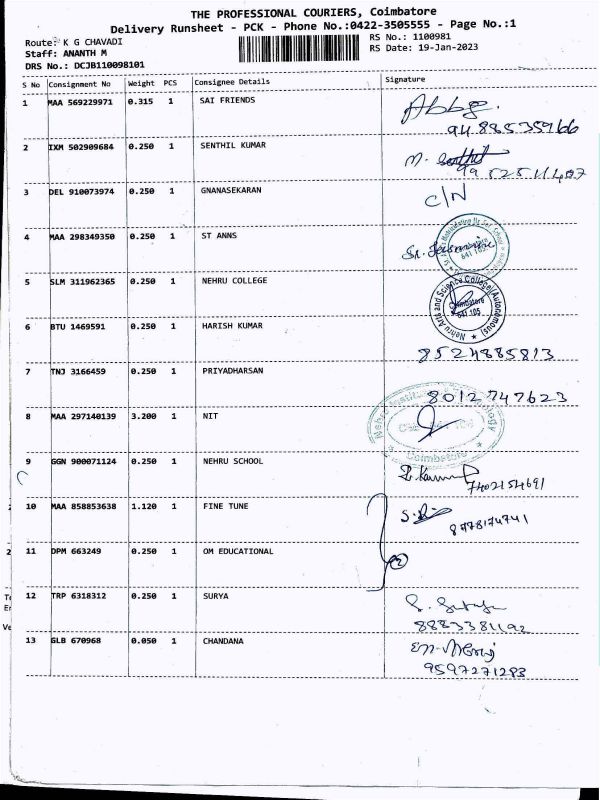 THE PROFESSIONAL COURIERS, Coimbatore
Delivery Runsheet - PCK - Phone No.:0422-3505555 - Page No.:1
Route: K G CHAVADI
RS No.: 1100981
Staff: ANANTH M
RS Date: 19-Jan-2023
DRS No.: DCJB110098101
S No Consignment No Weight PCS Consignee Details Signature
1 MAA 569229971 0.315 1 SAI FRIENDS
2 IXM 502909684 0.250 1 SENTHIL KUMAR
3 DEL 910073974 0.250 1 GNANASEKARAN C/N
4 MAA 298349350 0.250 1 ST ANNS
641 105
5 SLM 311962365 0.250 1 NEHRU COLLEGE
Nehru Arts and Science College(Autonomous)
Coimbatore
641 105
6 BTU 1469591 0.250 1 HARISH KUMAR
8524885813
7 TNJ 3166459 0.250 1 PRIYADHARSAN
8012747623
8 MAA 297140139 3.200 1 NIT
Coimbatore
9 GGN 900071124 0.250 1 NEHRU SCHOOL
7402154691
10 MAA 858853638 1.120 1 FINE TUNE
8778174741
11 DPM 663249 0.250 1 OM EDUCATIONAL
2
12 TRP 6318312 0.250 1 SURYA
8883381192
13 GLB 670968 0.050 1 CHANDANA
9597271283